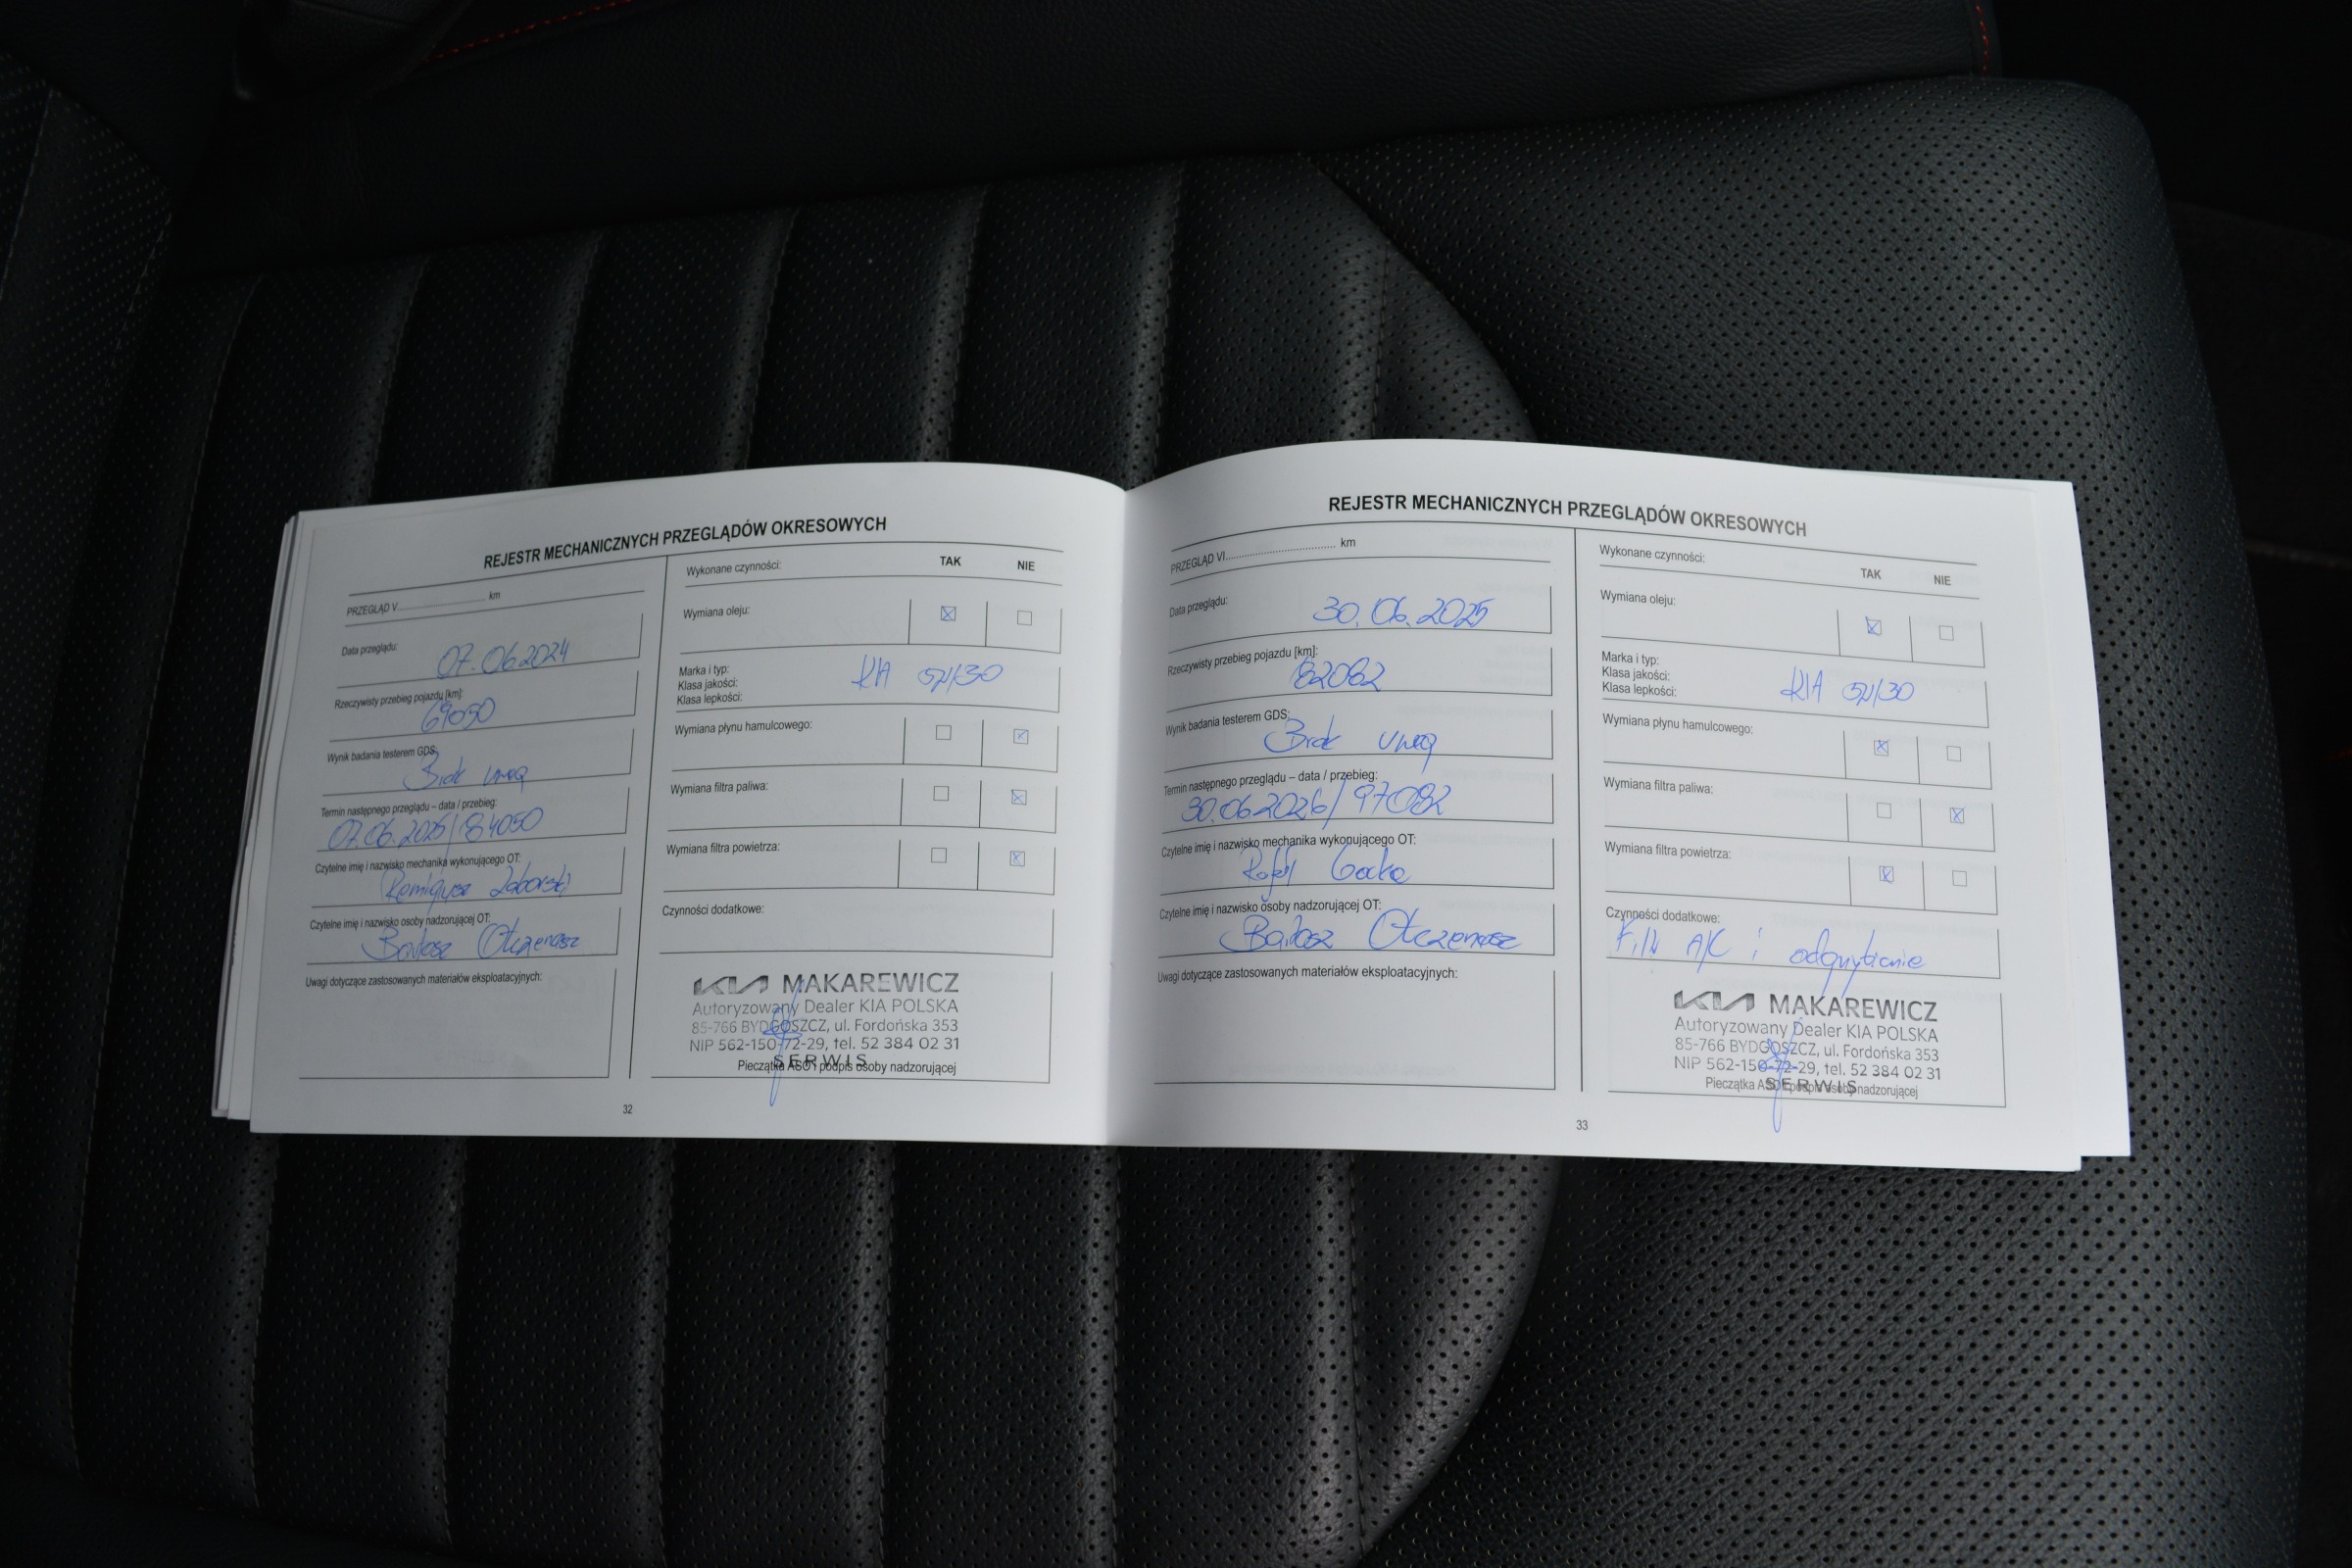 REJESTR MECHANICZNYCH PRZEGLĄDÓW OKRESOWYCH
PRZEGLĄD V.............................. km
Data przeglądu: 07.06.2024
Rzeczywisty przebieg pojazdu [km]:
69050
Wynik badania testerem GDS:
Brak uwag
Termin następnego przeglądu – data / przebieg:
07.06.2025/84050
Czytelne imię i nazwisko mechanika wykonującego OT:
Remigiusz Zaborski
Czytelne imię i nazwisko osoby nadzorującej OT:
Bartosz Otczenasz
Uwagi dotyczące zastosowanych materiałów eksploatacyjnych:
Wykonane czynności: TAK NIE
Wymiana oleju: ☒ ☐
Marka i typ:
Klasa jakości: KIA 5W30
Klasa lepkości:
Wymiana płynu hamulcowego: ☐ ☒
Wymiana filtra paliwa: ☐ ☒
Wymiana filtra powietrza: ☐ ☒
Czynności dodatkowe:
KIA MAKAREWICZ
Autoryzowany Dealer KIA POLSKA
85-766 BYDGOSZCZ, ul. Fordońska 353
NIP 562-150-72-29, tel. 52 384 02 31
SERWIS
Pieczątka ASO i podpis osoby nadzorującej
32
REJESTR MECHANICZNYCH PRZEGLĄDÓW OKRESOWYCH
PRZEGLĄD VI.................................... km
Data przeglądu: 30.06.2025
Rzeczywisty przebieg pojazdu [km]:
82082
Wynik badania testerem GDS:
Brak uwag
Termin następnego przeglądu – data / przebieg:
30.06.2026/97082
Czytelne imię i nazwisko mechanika wykonującego OT:
Rafał
Czytelne imię i nazwisko osoby nadzorującej OT:
Bartosz Otczenasz
Uwagi dotyczące zastosowanych materiałów eksploatacyjnych:
Wykonane czynności: TAK NIE
Wymiana oleju: ☒ ☐
Marka i typ:
Klasa jakości: KIA 5W30
Klasa lepkości:
Wymiana płynu hamulcowego: ☒ ☐
Wymiana filtra paliwa: ☐ ☒
Wymiana filtra powietrza: ☒ ☐
Czynności dodatkowe:
A/C i odgrzybianie
KIA MAKAREWICZ
Autoryzowany Dealer KIA POLSKA
85-766 BYDGOSZCZ, ul. Fordońska 353
NIP 562-150-72-29, tel. 52 384 02 31
SERWIS
Pieczątka ASO i podpis osoby nadzorującej
33